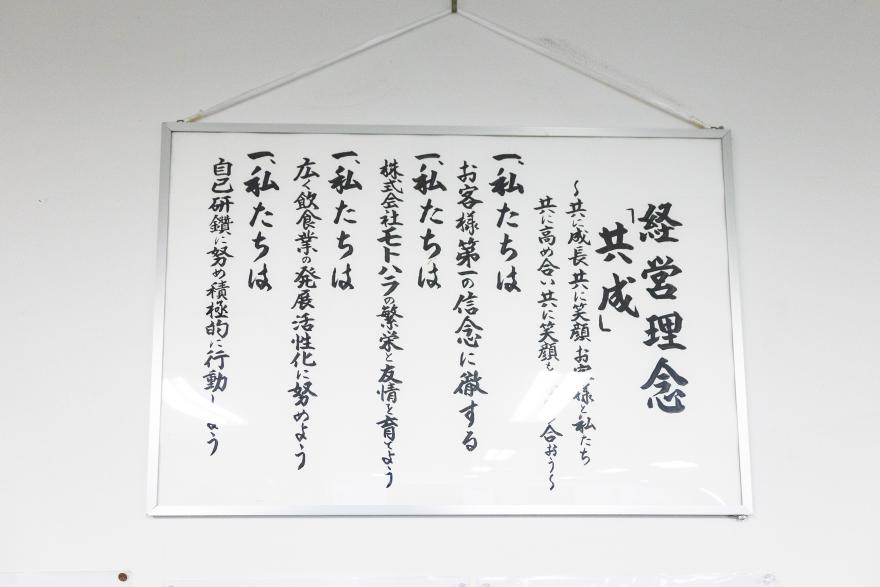 経営理念
「共成」
〜共に成長 共に笑顔 お客様と私たち
共に高め合い共に笑顔も 合おう〜
一、私たちは
お客様第一の信念に徹する
一、私たちは
株式会社モトハラの繁栄と友情を育てよう
一、私たちは
広く飲食業の発展活性化に努めよう
一、私たちは
自己研鑽に努め積極的に行動しよう